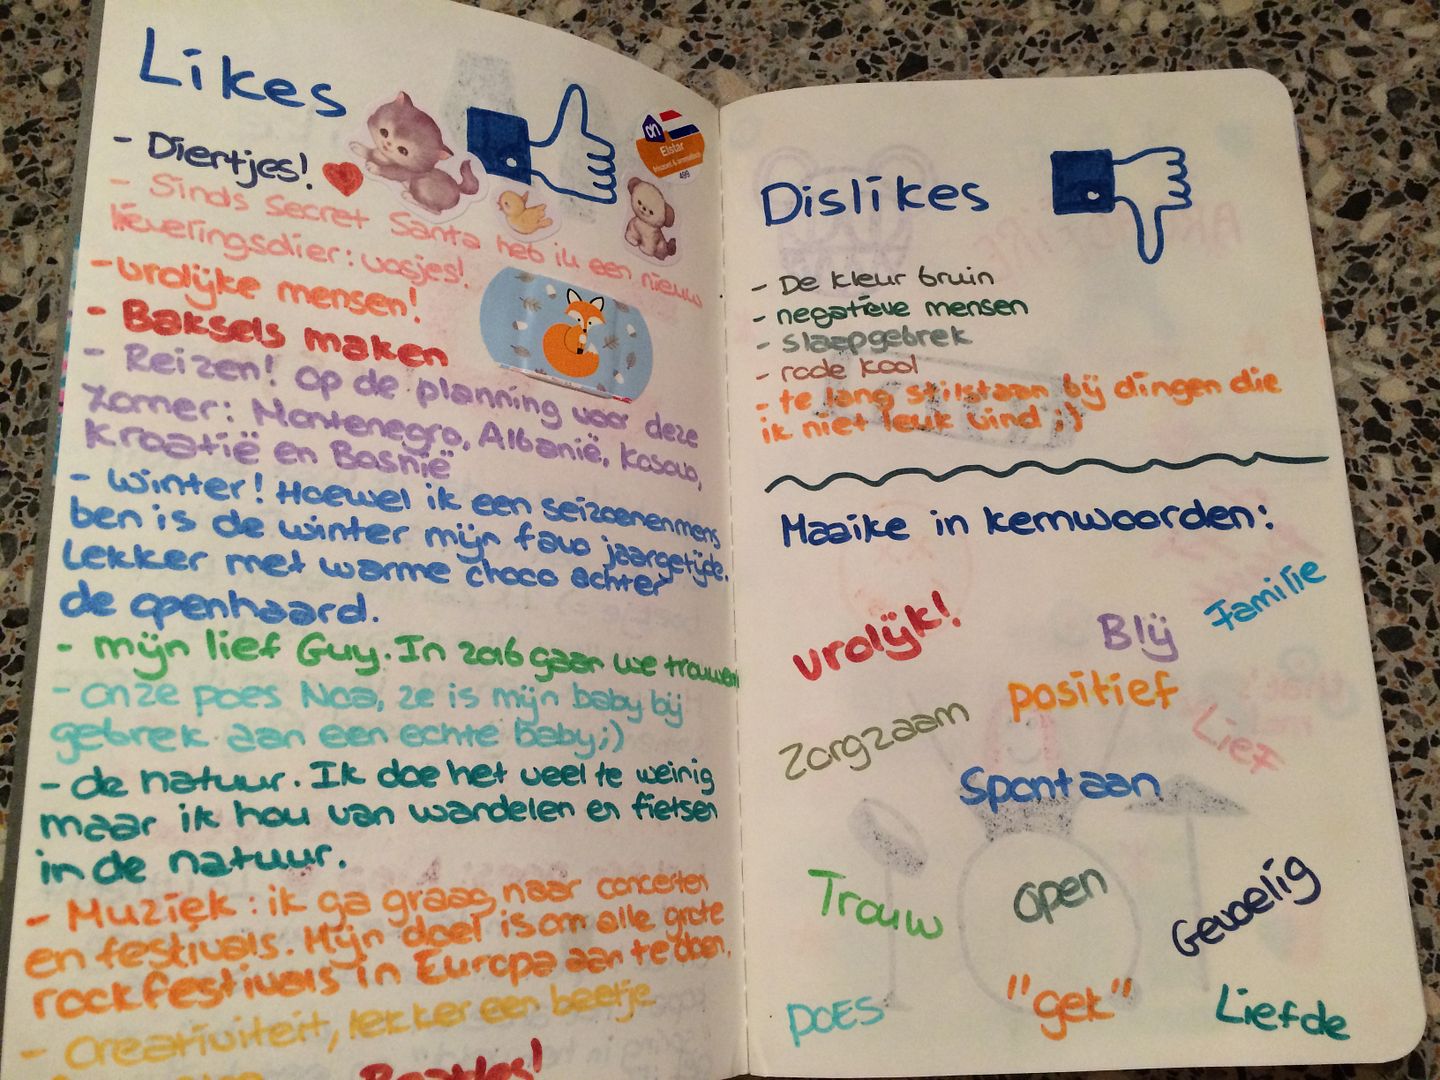 Likes
- Diertjes!
- Sinds Secret Santa heb ik een nieuw
lieveringsdier: vosjes!
- vrolijke mensen!
- Baksels maken
- Reizen! Op de planning voor deze
zomer: Montenegro, Albanië, Kosovo,
Kroatië en Bosnië
- Winter! Hoewel ik een seizoenenmens
ben is de winter mijn favo jaargetijde.
Lekker met warme choco achter
de openhaard.
- mijn lief Guy. In 2016 gaan we trouwen
- onze poes Noa, ze is mijn baby bij
gebrek aan een echte baby ;)
- de natuur. Ik doe het veel te weinig
maar ik hou van wandelen en fietsen
in de natuur.
- Muziek: ik ga graag naar concerten
en festivals. Mijn doel is om alle grote
rockfestivals in Europa aan te doen.
- Creativiteit, lekker een beetje
Beatles!
AH
Elstar
499
Dislikes
- De kleur bruin
- negatieve mensen
- slaapgebrek
- rode kool
- te lang stilstaan bij dingen die
ik niet leuk vind ;)
Maaike in kernwoorden:
vrolijk!
Blij
Familie
positief
Zorgzaam
Lief
Spontaan
Trouw
open
Gevoelig
poes
"gek"
Liefde